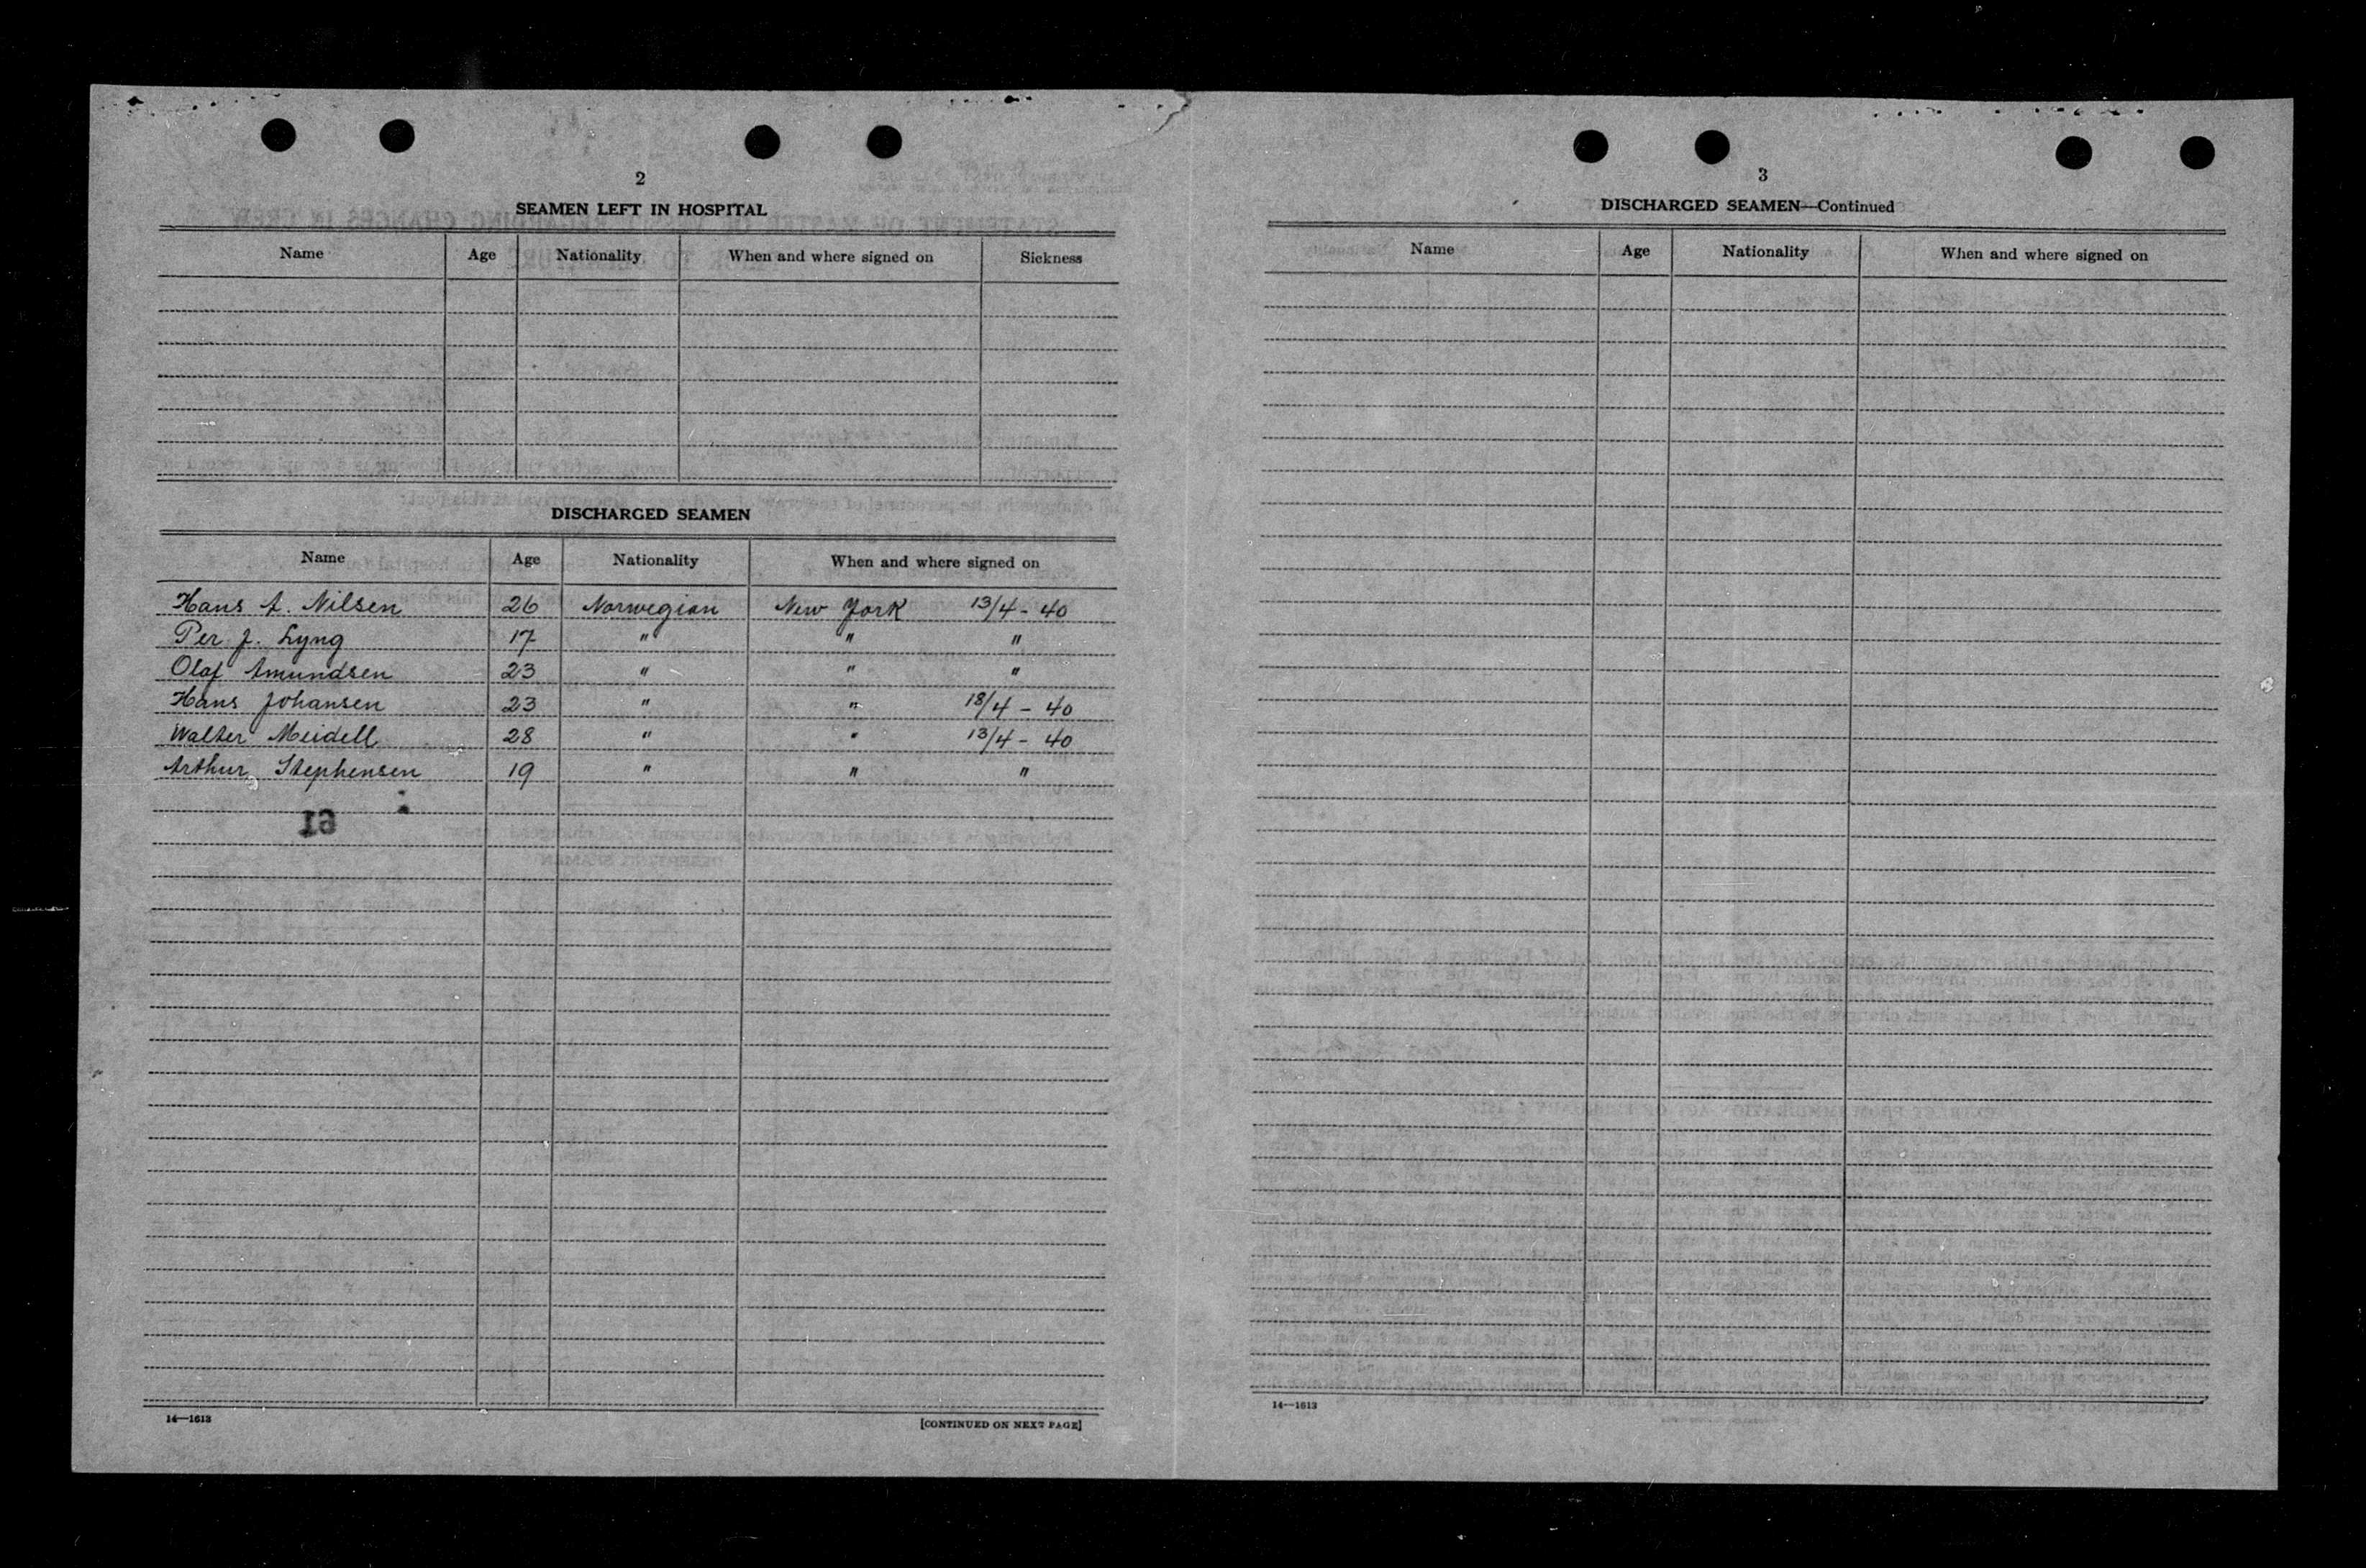 2
SEAMEN LEFT IN HOSPITAL
Name Age Nationality When and where signed on Sickness
DISCHARGED SEAMEN
Name Age Nationality When and where signed on
Hans A. Nilsen 26 Norwegian New York 13/4 - 40
Per J. Lyng 17 " " "
Olaf Amundsen 23 " " "
Hans Johansen 23 " " 18/4 - 40
Walter Meidell 28 " " 13/4 - 40
Arthur Stephensen 19 " " "
14—1613
[CONTINUED ON NEXT PAGE]
3
DISCHARGED SEAMEN—Continued
Name Age Nationality When and where signed on
14—1613